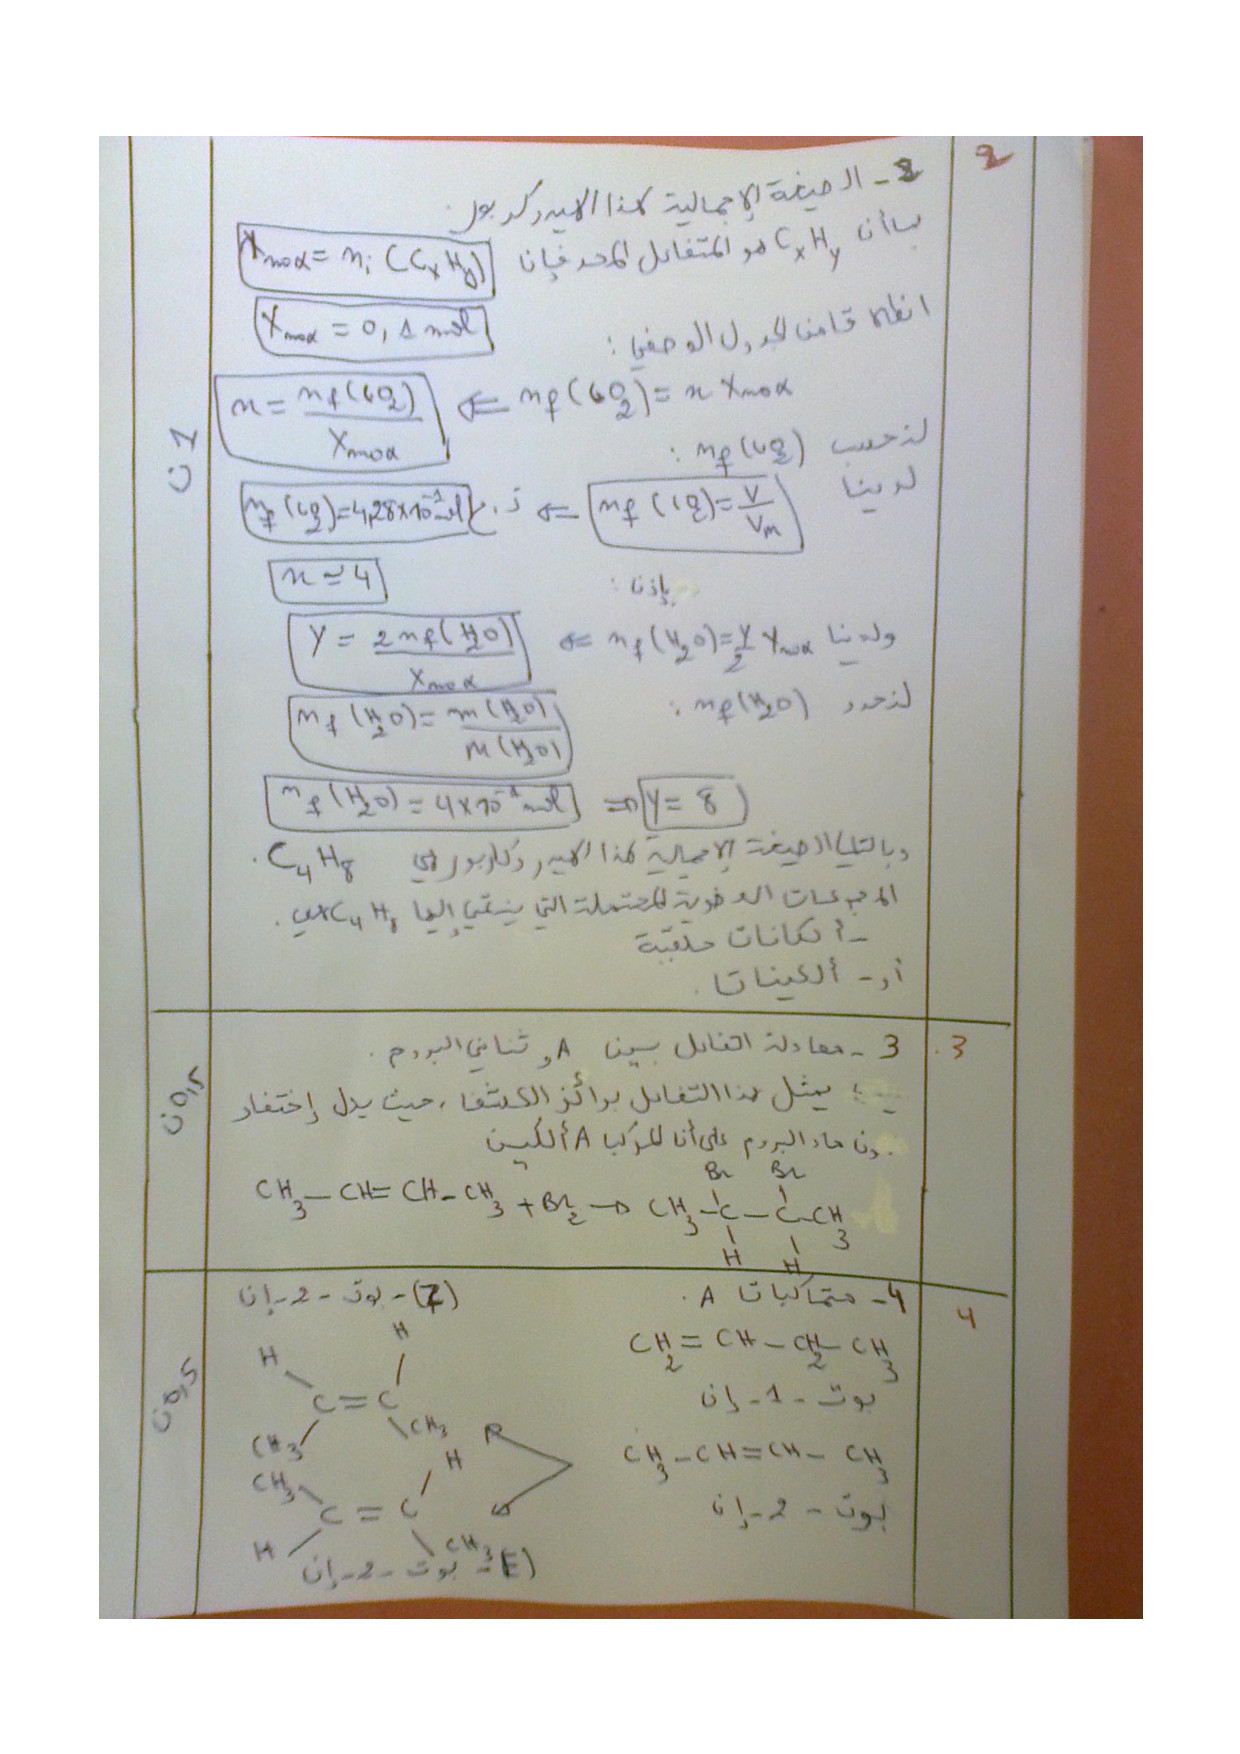 2
2- الصيغة الإجمالية لهذا الهيدروكربور.
بما أن CxHy هو المتفاعل المحد فإن Xmax = ni (CxHy)
Xmax = 0,1 mol
انطلاقا من الجدول الوصفي :
nf(CO2) = x Xmax ⇐ x = nf(CO2) / Xmax
لنحسب nf(CO2) :
لدينا nf(CO2) = V / Vm ⇐ ت.ع nf(CO2) = 4,28×10⁻¹ mol
إذن : x ≃ 4
ولدينا nf(H2O) = y/2 Xmax ⇐ y = 2 nf(H2O) / Xmax
لنحدد nf(H2O) :
nf(H2O) = m(H2O) / M(H2O)
nf(H2O) = 4×10⁻¹ mol ⇒ y = 8
وبالتالي الصيغة الإجمالية لهذا الهيدروكاربور هي C4H8 .
المجموعات العضوية المحتملة التي ينتمي إليها C4H8 هي .
- ألكانات حلقية
أو - ألكينات .
1 ن
3
3 - معادلة التفاعل بين A و ثنائي البروم .
يمثل هذا التفاعل روائز الكشف ، حيث يدل إختفاء
لون ماء البروم على أن المركب A ألكين
CH3 – CH = CH – CH3 + Br2 → CH3 – C – C – CH3
Br Br
H H
0,5 ن
4
4- متماكبات A .
CH2 = CH – CH2 – CH3
بوت - 1 - إن
CH3 – CH = CH – CH3
بوت - 2 - إن
(Z) - بوت - 2 - إن
H H
C = C
CH3 CH3
CH3 H
C = C
H CH3
(E) - بوت - 2 - إن
0,5 ن